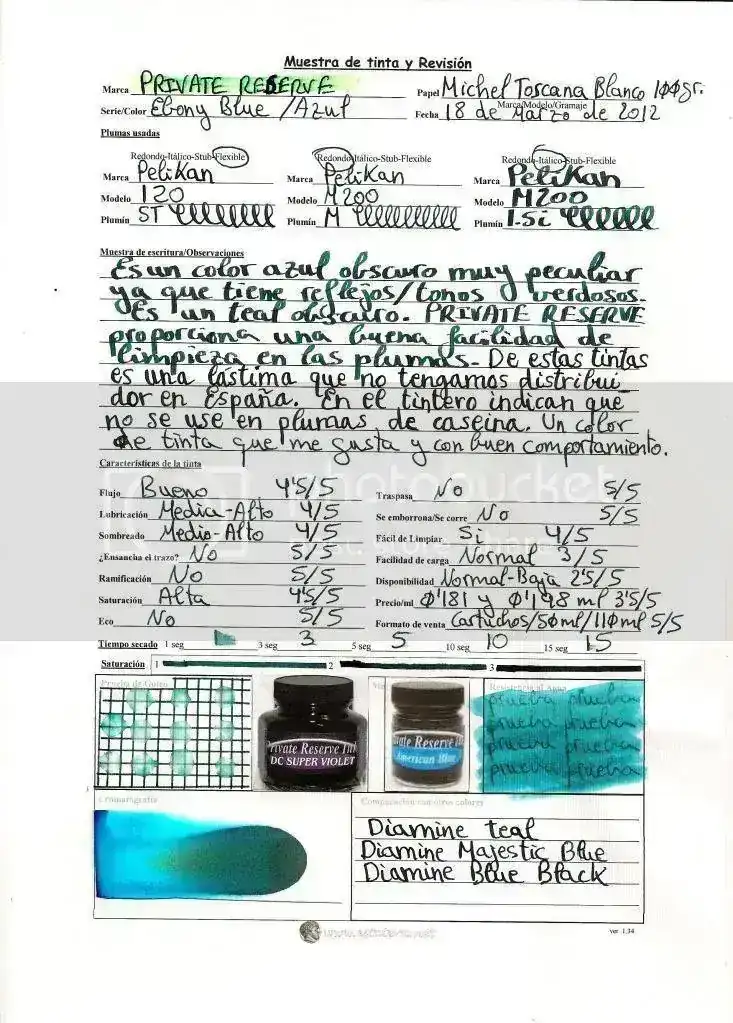 Muestra de tinta y Revisión
Marca PRIVATE RESERVE
Papel Michel Toscana Blanco 100gr.
Marca/Modelo/Gramaje
Serie/Color Ebony Blue / Azul
Fecha 18 de Marzo de 2012
Plumas usadas
Redondo-Itálico-Stub-Flexible
Marca Pelikan
Modelo 120
Plumín ST
Redondo-Itálico-Stub-Flexible
Marca Pelikan
Modelo M200
Plumín M
Redondo-Itálico-Stub-Flexible
Marca Pelikan
Modelo M200
Plumín 1.5i
Muestra de escritura/Observaciones
Es un color azul obscuro muy peculiar
ya que tiene reflejos/tonos verdosos.
Es un teal obscuro. PRIVATE RESERVE
proporciona una buena facilidad de
limpieza en las plumas. De estas tintas
es una lástima que no tengamos distribui_
dor en España. En el tintero indican que
no se use en plumas de caseina. Un color
de tinta que me gusta y con buen comportamiento.
Características de la tinta
Flujo Bueno 4'5/5
Traspasa No 5/5
Lubricación Media-Alto 4/5
Se emborrona/Se corre No 5/5
Sombreado Medio-Alto 4/5
Fácil de Limpiar Si 4/5
¿Ensancha el trazo? No 5/5
Facilidad de carga Normal 3/5
Ramificación No 5/5
Disponibilidad Normal-Baja 2'5/5
Saturación Alta 4'5/5
Precio/ml 0'181 y 0'198 ml 3'5/5
Eco No 5/5
Formato de venta Cartuchos/50ml/110ml 5/5
Tiempo secado 1 seg 3 seg 3 5 seg 5 10 seg 10 15 seg 15
Saturación 1 2 3
Prueba de Goteo
Private Reserve Ink
DC SUPER VIOLET
Private Reserve Ink
American Blue
Resistencia al Agua
prueba prueba
prueba prueba
prueba prueba
prueba prueba
Cromatografía
Comparación con otros colores
Diamine teal
Diamine Majestic Blue
Diamine Blue Black
ver 1.34
photobucket